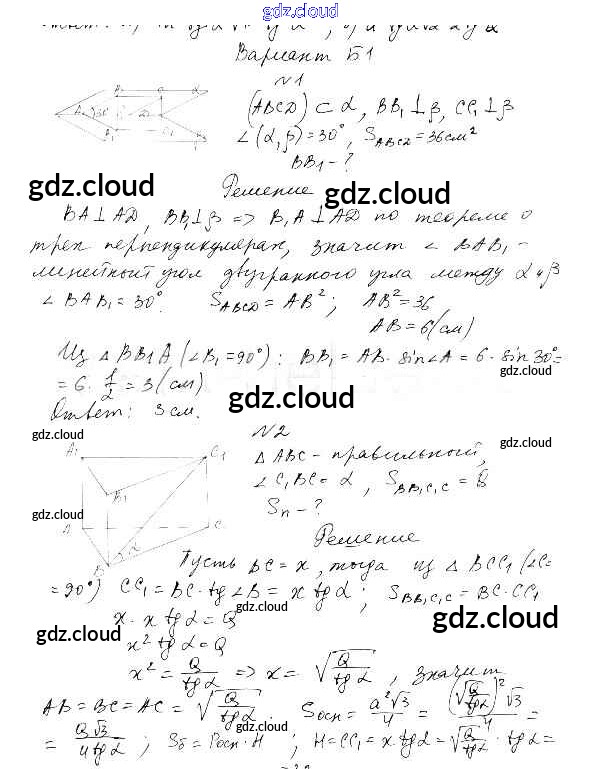 gdz.cloud
Вариант Б1
N1
(ABCD) ⊂ α, BB₁⊥β, CC₁⊥β
∠(α, β) = 30°, S_ABCD = 36 см²
BB₁ - ?
gdz.cloud
gdz.cloud
Решение
BA⊥AD, BB₁⊥β => B₁A⊥AD по теореме о
трех перпендикулярах, значит ∠BAB₁ -
линейный угол двугранного угла между α и β
∠BAB₁ = 30°. S_ABCD = AB²; AB² = 36
AB = 6 (см)
Из △BB₁A (∠B₁ = 90°): BB₁ = AB · sin∠A = 6 · sin 30° =
gdz.cloud
= 6 · 1/2 = 3 (см).
gdz.cloud
Ответ: 3 см.
N2
gdz.cloud
gdz.cloud
A₁ C₁
△ABC - правильный,
∠C₁BC = α, S_BB₁C₁C = B
B₁
Sп - ?
gdz.cloud
A C
Решение
B α
Пусть BC = x, тогда из △BCC₁ (∠C =
= 90°) CC₁ = BC · tg∠B = x tgα; S_BB₁C₁C = BC · CC₁
gdz.cloud
x · x tgα = Q
gdz.cloud
gdz.cloud
x² tgα = Q
x² = Q/tgα => x = √(Q/tgα), значит
AB = BC = AC = √(Q/tgα); Sосн = a²√3/4 = (√(Q/tgα))²√3/4 =
= Q√3/4tgα; Sб = Pосн · H; H = CC₁ = x tgα = √(Q/tgα) · tgα =
gdz.cloud